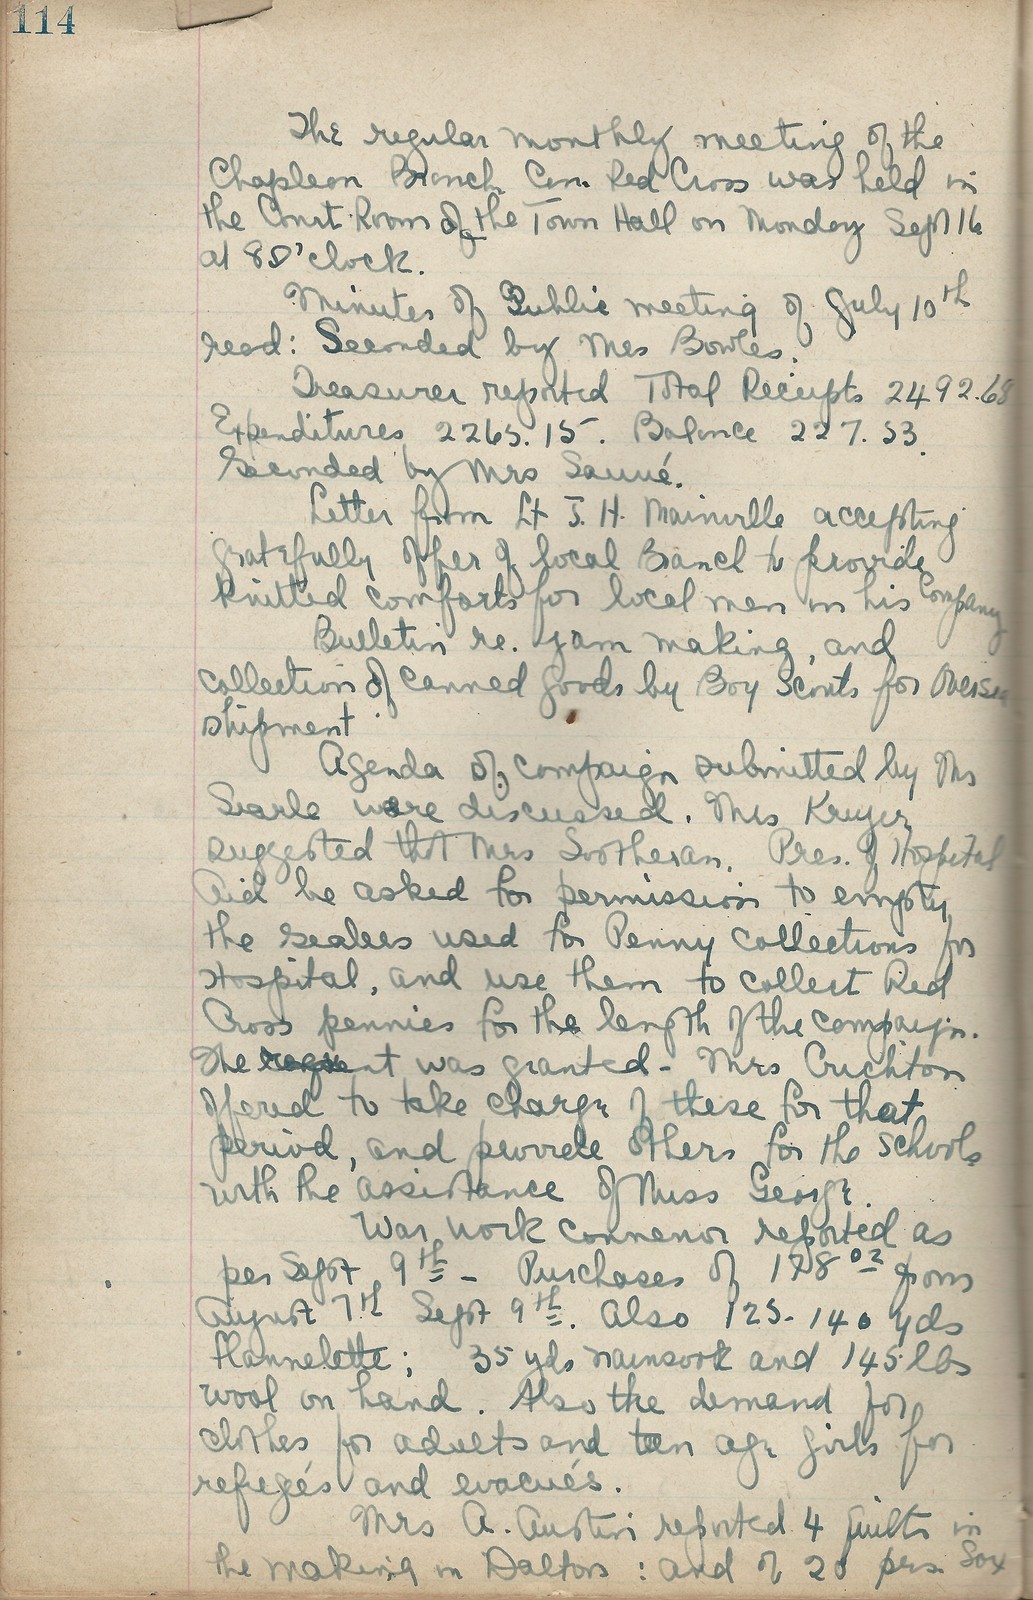 114
The regular monthly meeting of the
Chapleau Branch Can. Red Cross was held in
the Court Room of the Town Hall on Monday Sept 16
at 8 O'clock.
Minutes of Public meeting of July 10th
read: Seconded by Mrs Bowles.
Treasurer reported Total Receipts 2492.68
Expenditures 2265.15. Balance 227.53.
Seconded by Mrs Sauvé.
Letter from Lt J. H. Mainville accepting
gratefully offer of local Branch to provide
knitted comforts for local men in his Company
Bulletin re. jam making, and
collection of canned goods by Boy Scouts for Oversea
shipment
Agenda of campaign submitted by Mrs
Searle were discussed. Mrs Kruger
suggested that Mrs Sootheran, Pres. of Hospital
Aid be asked for permission to empty
the sealers used for Penny collections for
Hospital, and use them to collect Red
Cross pennies for the length of the campaign.
The request was granted - Mrs Crichton
offered to take charge of these for that
period, and provide others for the schools
with the assistance of Miss George.
War work convenor reported as
per Sept 9th - Purchases of 128.02 from
August 7th Sept 9th. Also 125-140 yds
flannelette; 35 yds nainsook and 145 lbs
wool on hand. Also the demand for
clothes for adults and teen age girls for
refugés and evacués.
Mrs A. Austin reported 4 quilts in
the making in Daltons: and of 20 prs. Sox